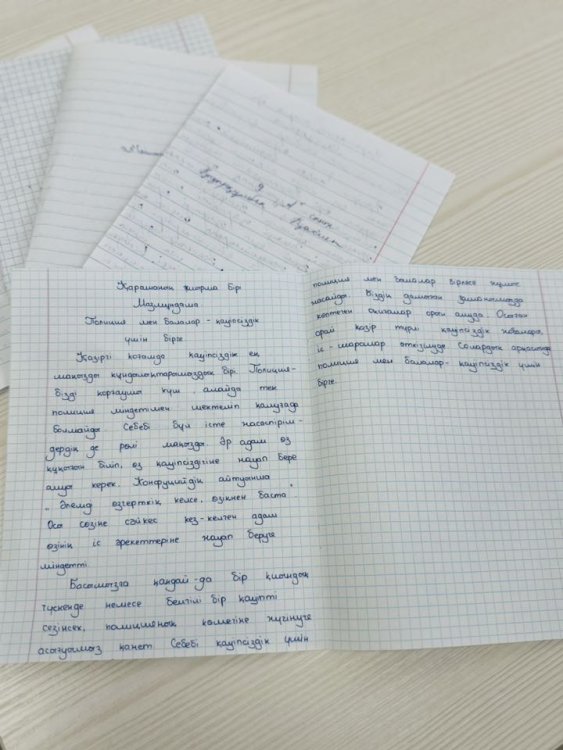 9 "А" сынып
Қарашаның жиырма бірі
Мазмұндама
Полиция мен балалар - қауіпсіздік
үшін бірге
Қазіргі қоғамда қауіпсіздік ең
маңызды құндылықтарымыздың бірі. Полиция-
бізді қорғаушы күш, алайда тек
полиция міндетімен шектеліп қалуға
болмайды. Себебі бұл істе жасөспірім-
дердің де рөлі маңызды. Әр адам өз
құқығын біліп, өз қауіпсіздігіне жауап бере
алуы керек. Конфуцийдің айтуынша
"Әлемді өзгерткің келсе, өзіңнен баста".
Осы сөзіне сәйкес кез-келген адам
өзінің іс әрекеттеріне жауап беруге
міндетті.
Басымызға қандай-да бір қиындық
түскенде немесе белгілі бір қауіпті
сезінсек, полицияның көмегіне жүгінуге
асығуымыз қажет. Себебі қауіпсіздік үшін
полиция мен балалар бірлесе жұмыс
жасайды. Біздің дамыған заманымызда
көптеген оқиғалар орын алуда. Осыған
орай қазір түрлі қауіпсіздік
іс-шаралар өткізілуде. Солардың арқасында
полиция мен балалар- қауіпсіздік үшін
бірге.